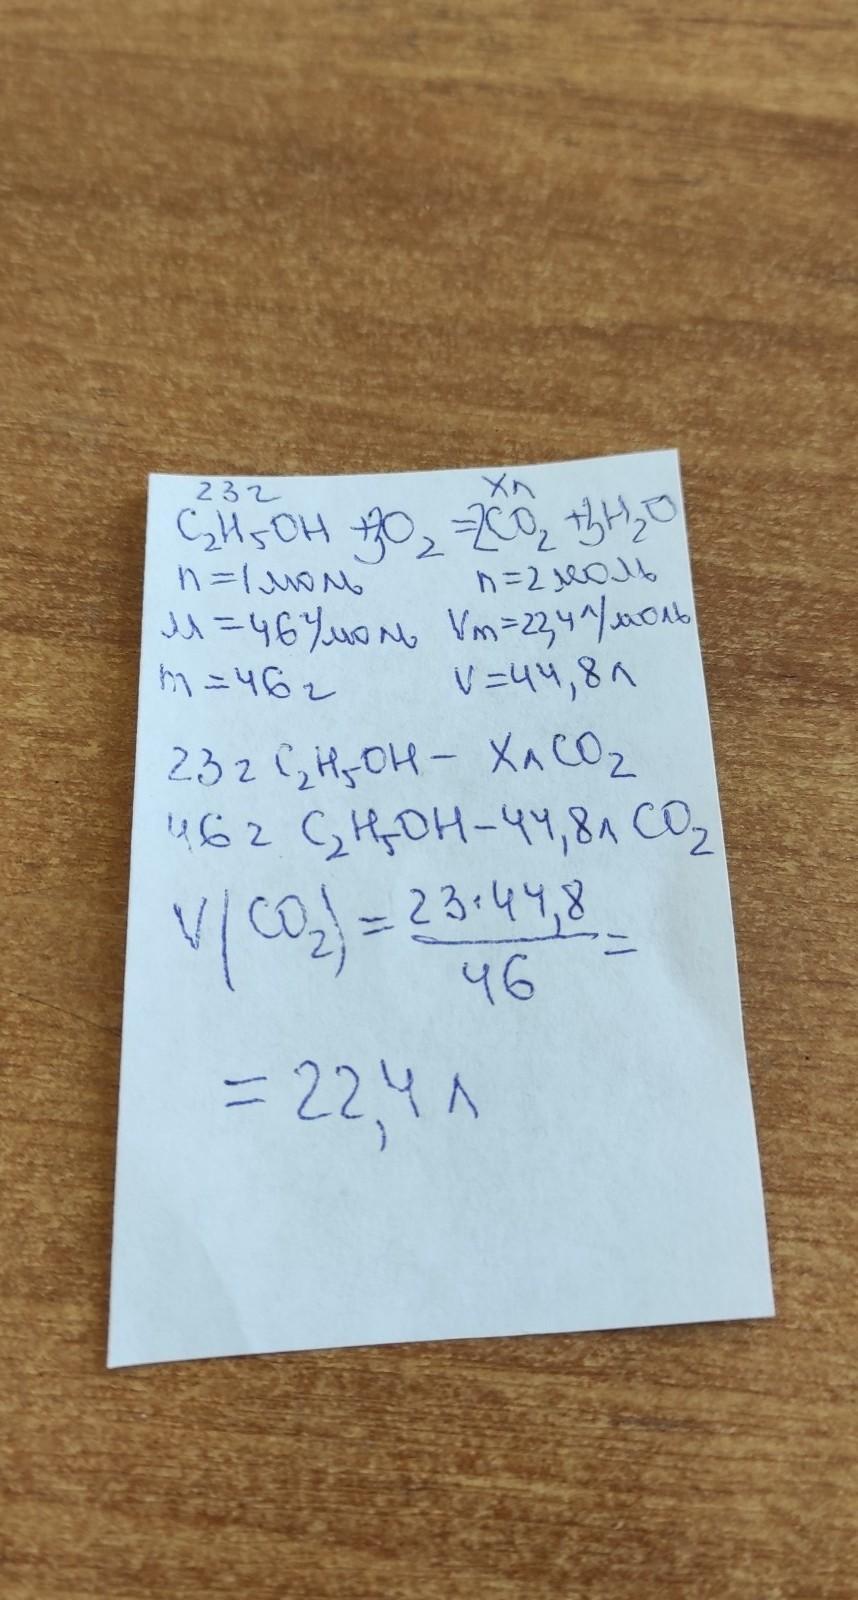 23г Xл
C₂H₅OH +3O₂ =2CO₂ +3H₂O
n=1моль n=2моль
M=46г/моль Vm=22,4л/моль
m=46г V=44,8л
23г C₂H₅OH – XлCO₂
46г C₂H₅OH–44,8л CO₂
V(CO₂) = 23·44,8 =
46
= 22,4 л